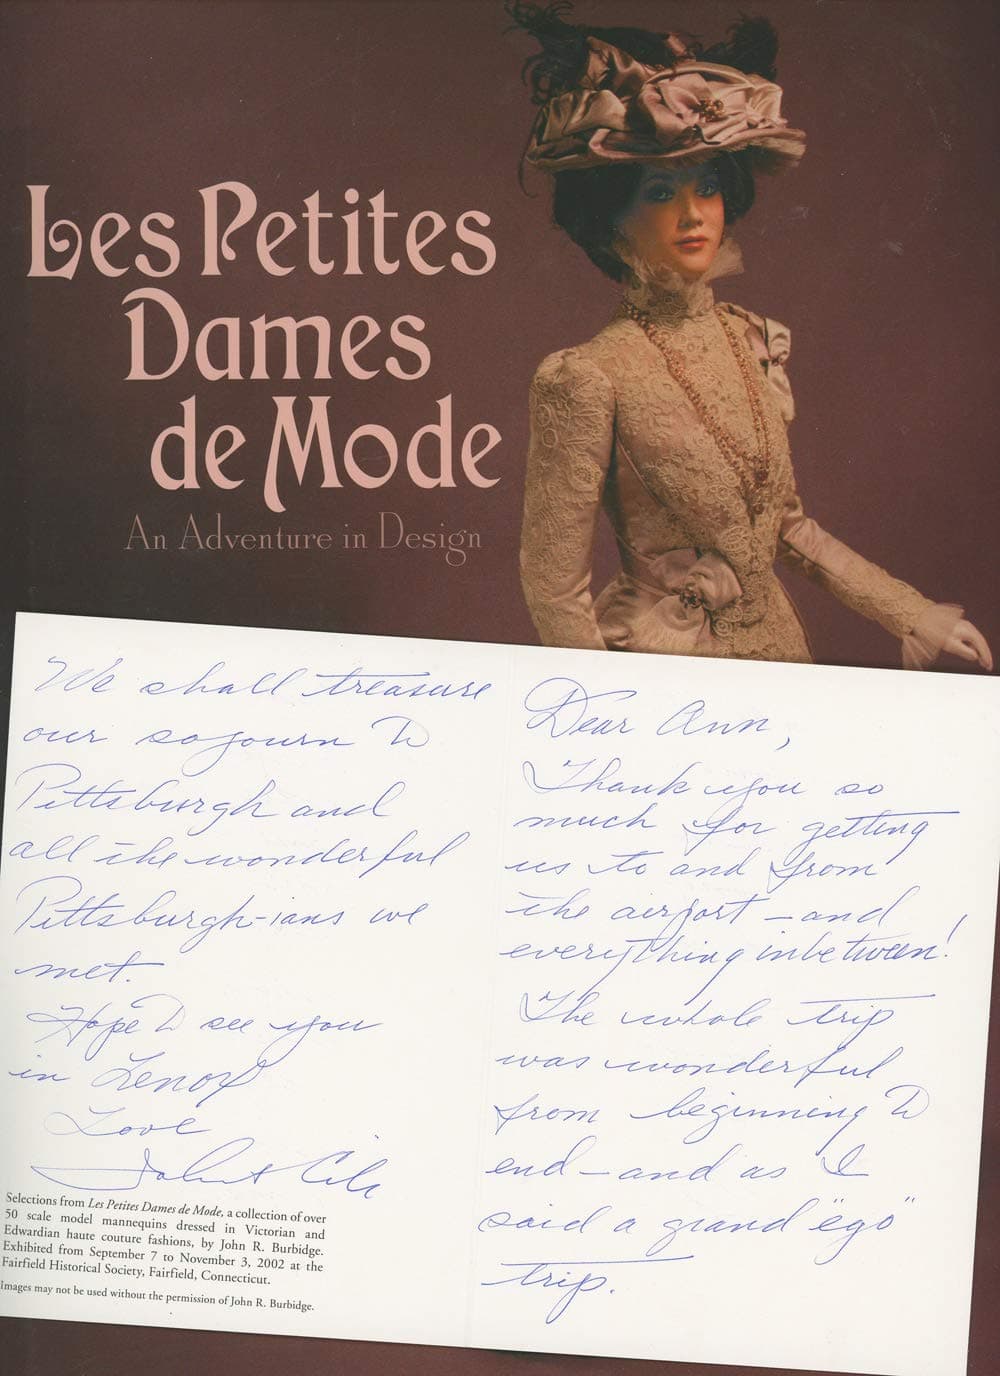 Les Petites
Dames
de Mode
An Adventure in Design
Dear Ann,
Thank you so
much for getting
us to and from
the airport – and
everything inbetween!
The whole trip
was wonderful
from beginning to
end – and as I
said a grand "ego"
trip.
We shall treasure
our sojourn to
Pittsburgh and
all the wonderful
Pittsburgh-ians we
met.
Hope to see you
in Lenox
Love
John &
Selections from Les Petites Dames de Mode, a collection of over
50 scale model mannequins dressed in Victorian and
Edwardian haute couture fashions, by John R. Burbidge.
Exhibited from September 7 to November 3, 2002 at the
Fairfield Historical Society, Fairfield, Connecticut.
Images may not be used without the permission of John R. Burbidge.